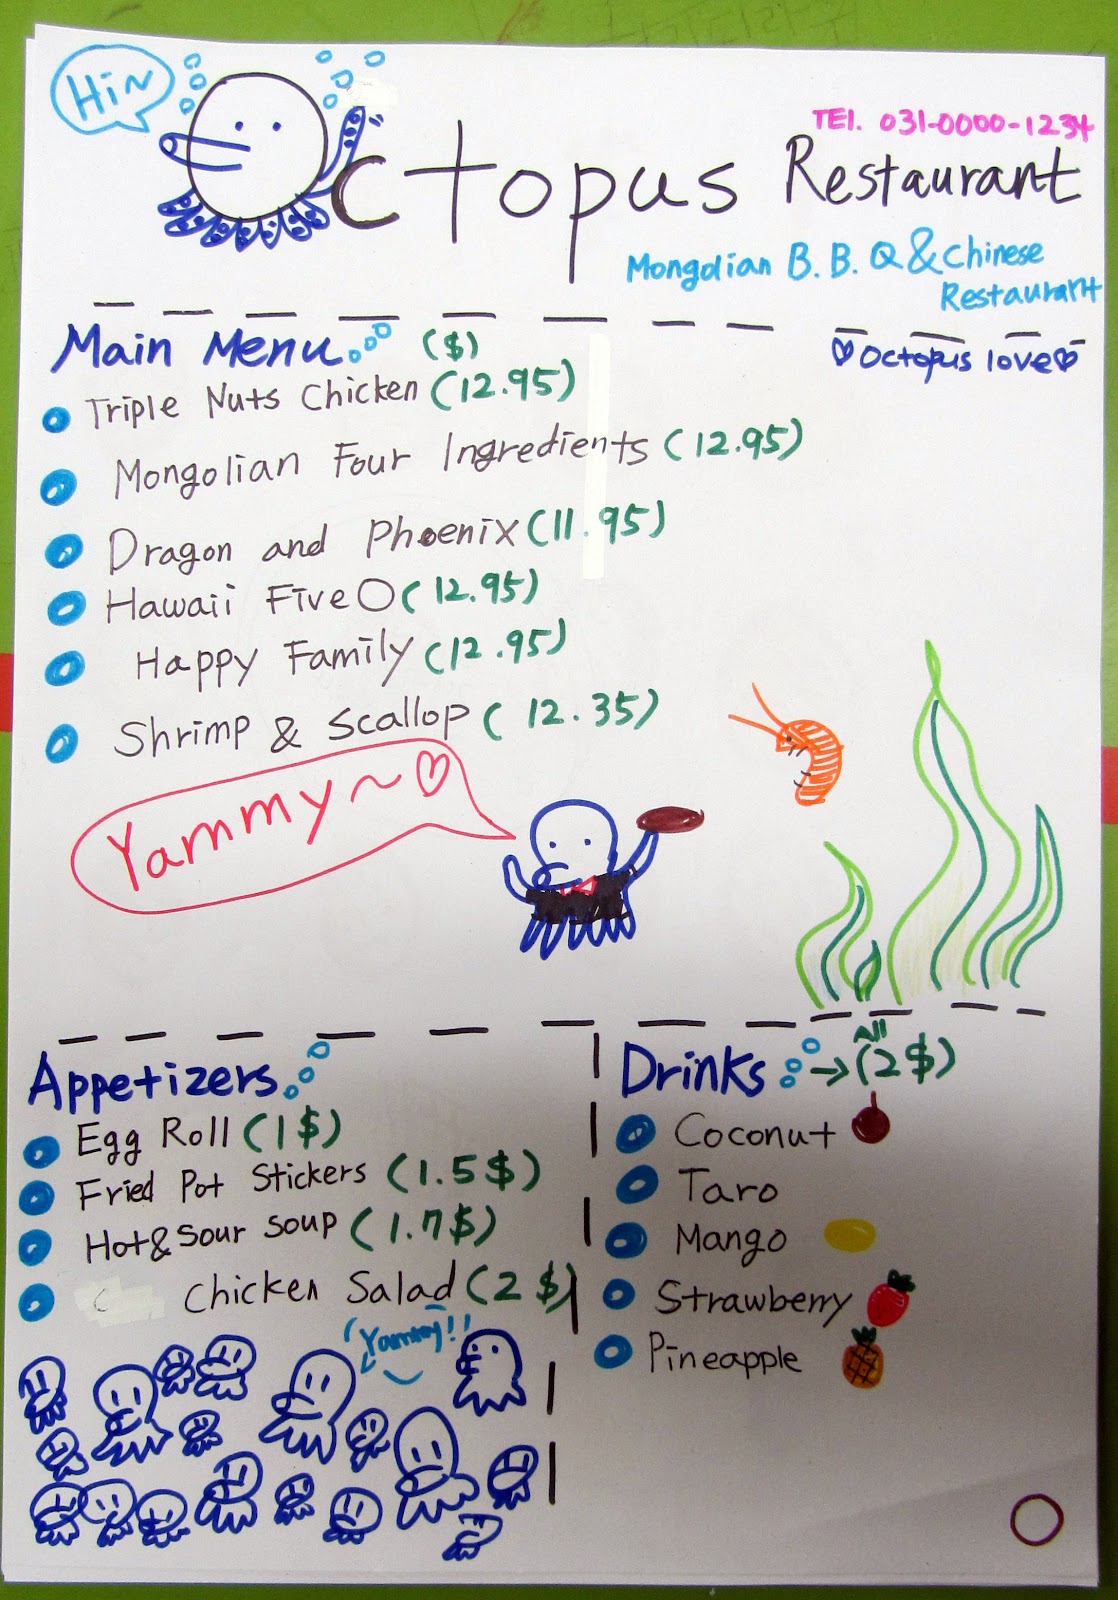 Hi~
TEl. 031-0000-1234
Octopus Restaurant
Mongolian B. B. Q & chinese
Restaurant
♡ octopus love ♡
Main Menu ($)
Triple Nuts Chicken (12.95)
Mongolian Four Ingredients (12.95)
Dragon and Phoenix (11.95)
Hawaii Five O (12.95)
Happy Family (12.95)
Shrimp & Scallop (12.35)
Yammy~♡
Appetizers
Egg Roll (1$)
Fried Pot Stickers (1.5$)
Hot & Sour Soup (1.7$)
Chicken Salad (2$)
Yammy!!
Drinks → All (2$)
Coconut
Taro
Mango
Strawberry
Pineapple